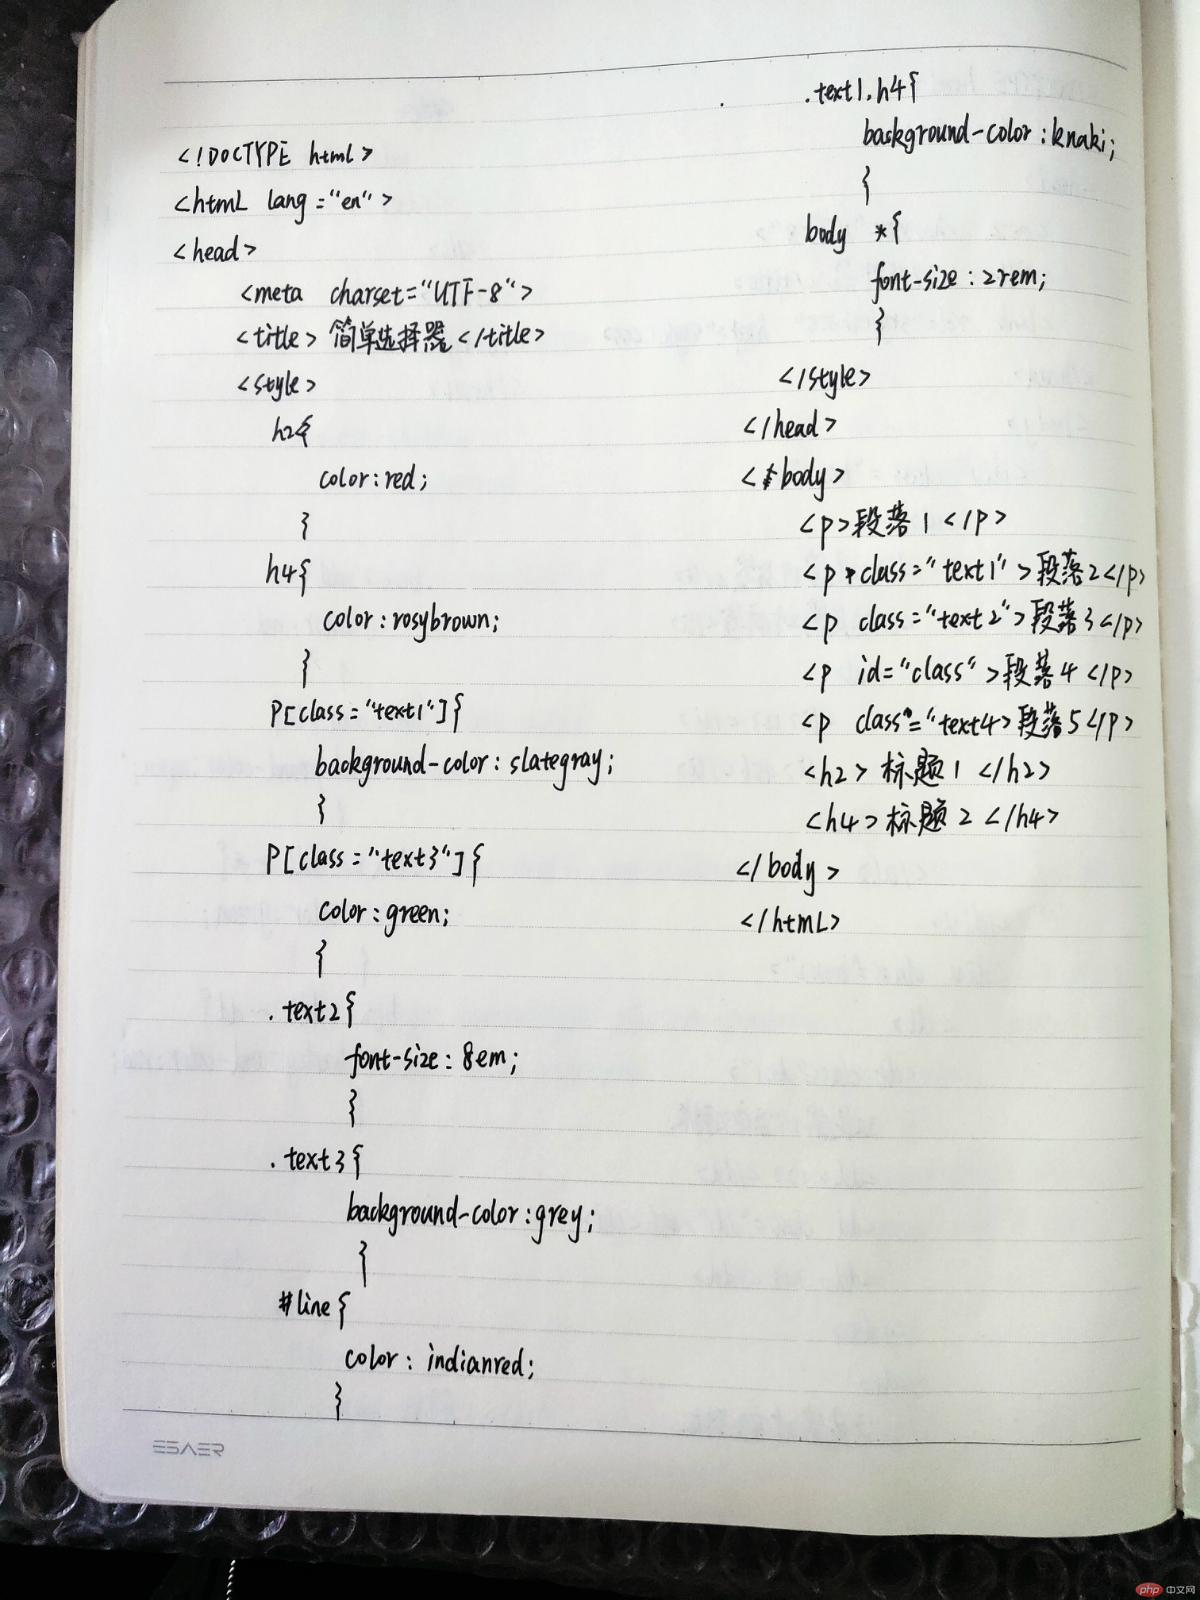 <!DOCTYPE html>
<html lang="en">
<head>
<meta charset="UTF-8">
<title>简单选择器</title>
<style>
h2{
color:red;
}
h4{
color:rosybrown;
}
P[class="text1"]{
background-color:slategray;
}
P[class="text3"]{
color:green;
}
.text2{
font-size:8em;
}
.text3{
background-color:grey;
}
#line{
color:indianred;
}
.text1.h4{
background-color:knaki;
}
body *{
font-size:2rem;
}
</style>
</head>
<body>
<p>段落1</p>
<p class="text1">段落2</p>
<p class="text2">段落3</p>
<p id="class">段落4</p>
<p class="text4>段落5</p>
<h2>标题1</h2>
<h4>标题2</h4>
</body>
</html>
ESAER
php中文网